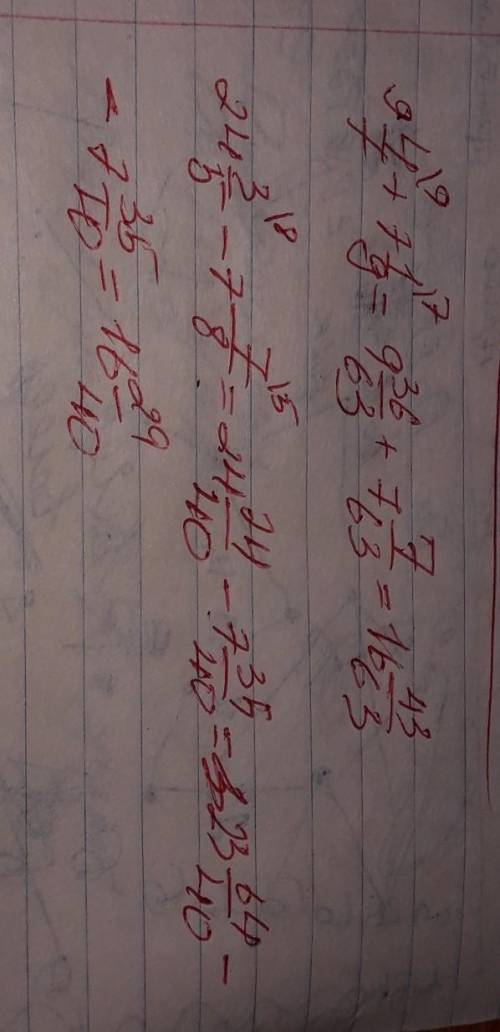 9 4/7 \9 + 7 1/9 \7 = 9 36/63 + 7 7/63 = 16 43/63
24 3/5 \8 - 7 7/8 \5 = 24 24/40 - 7 35/40 = 23 64/40 -
- 7 35/40 = 16 29/40